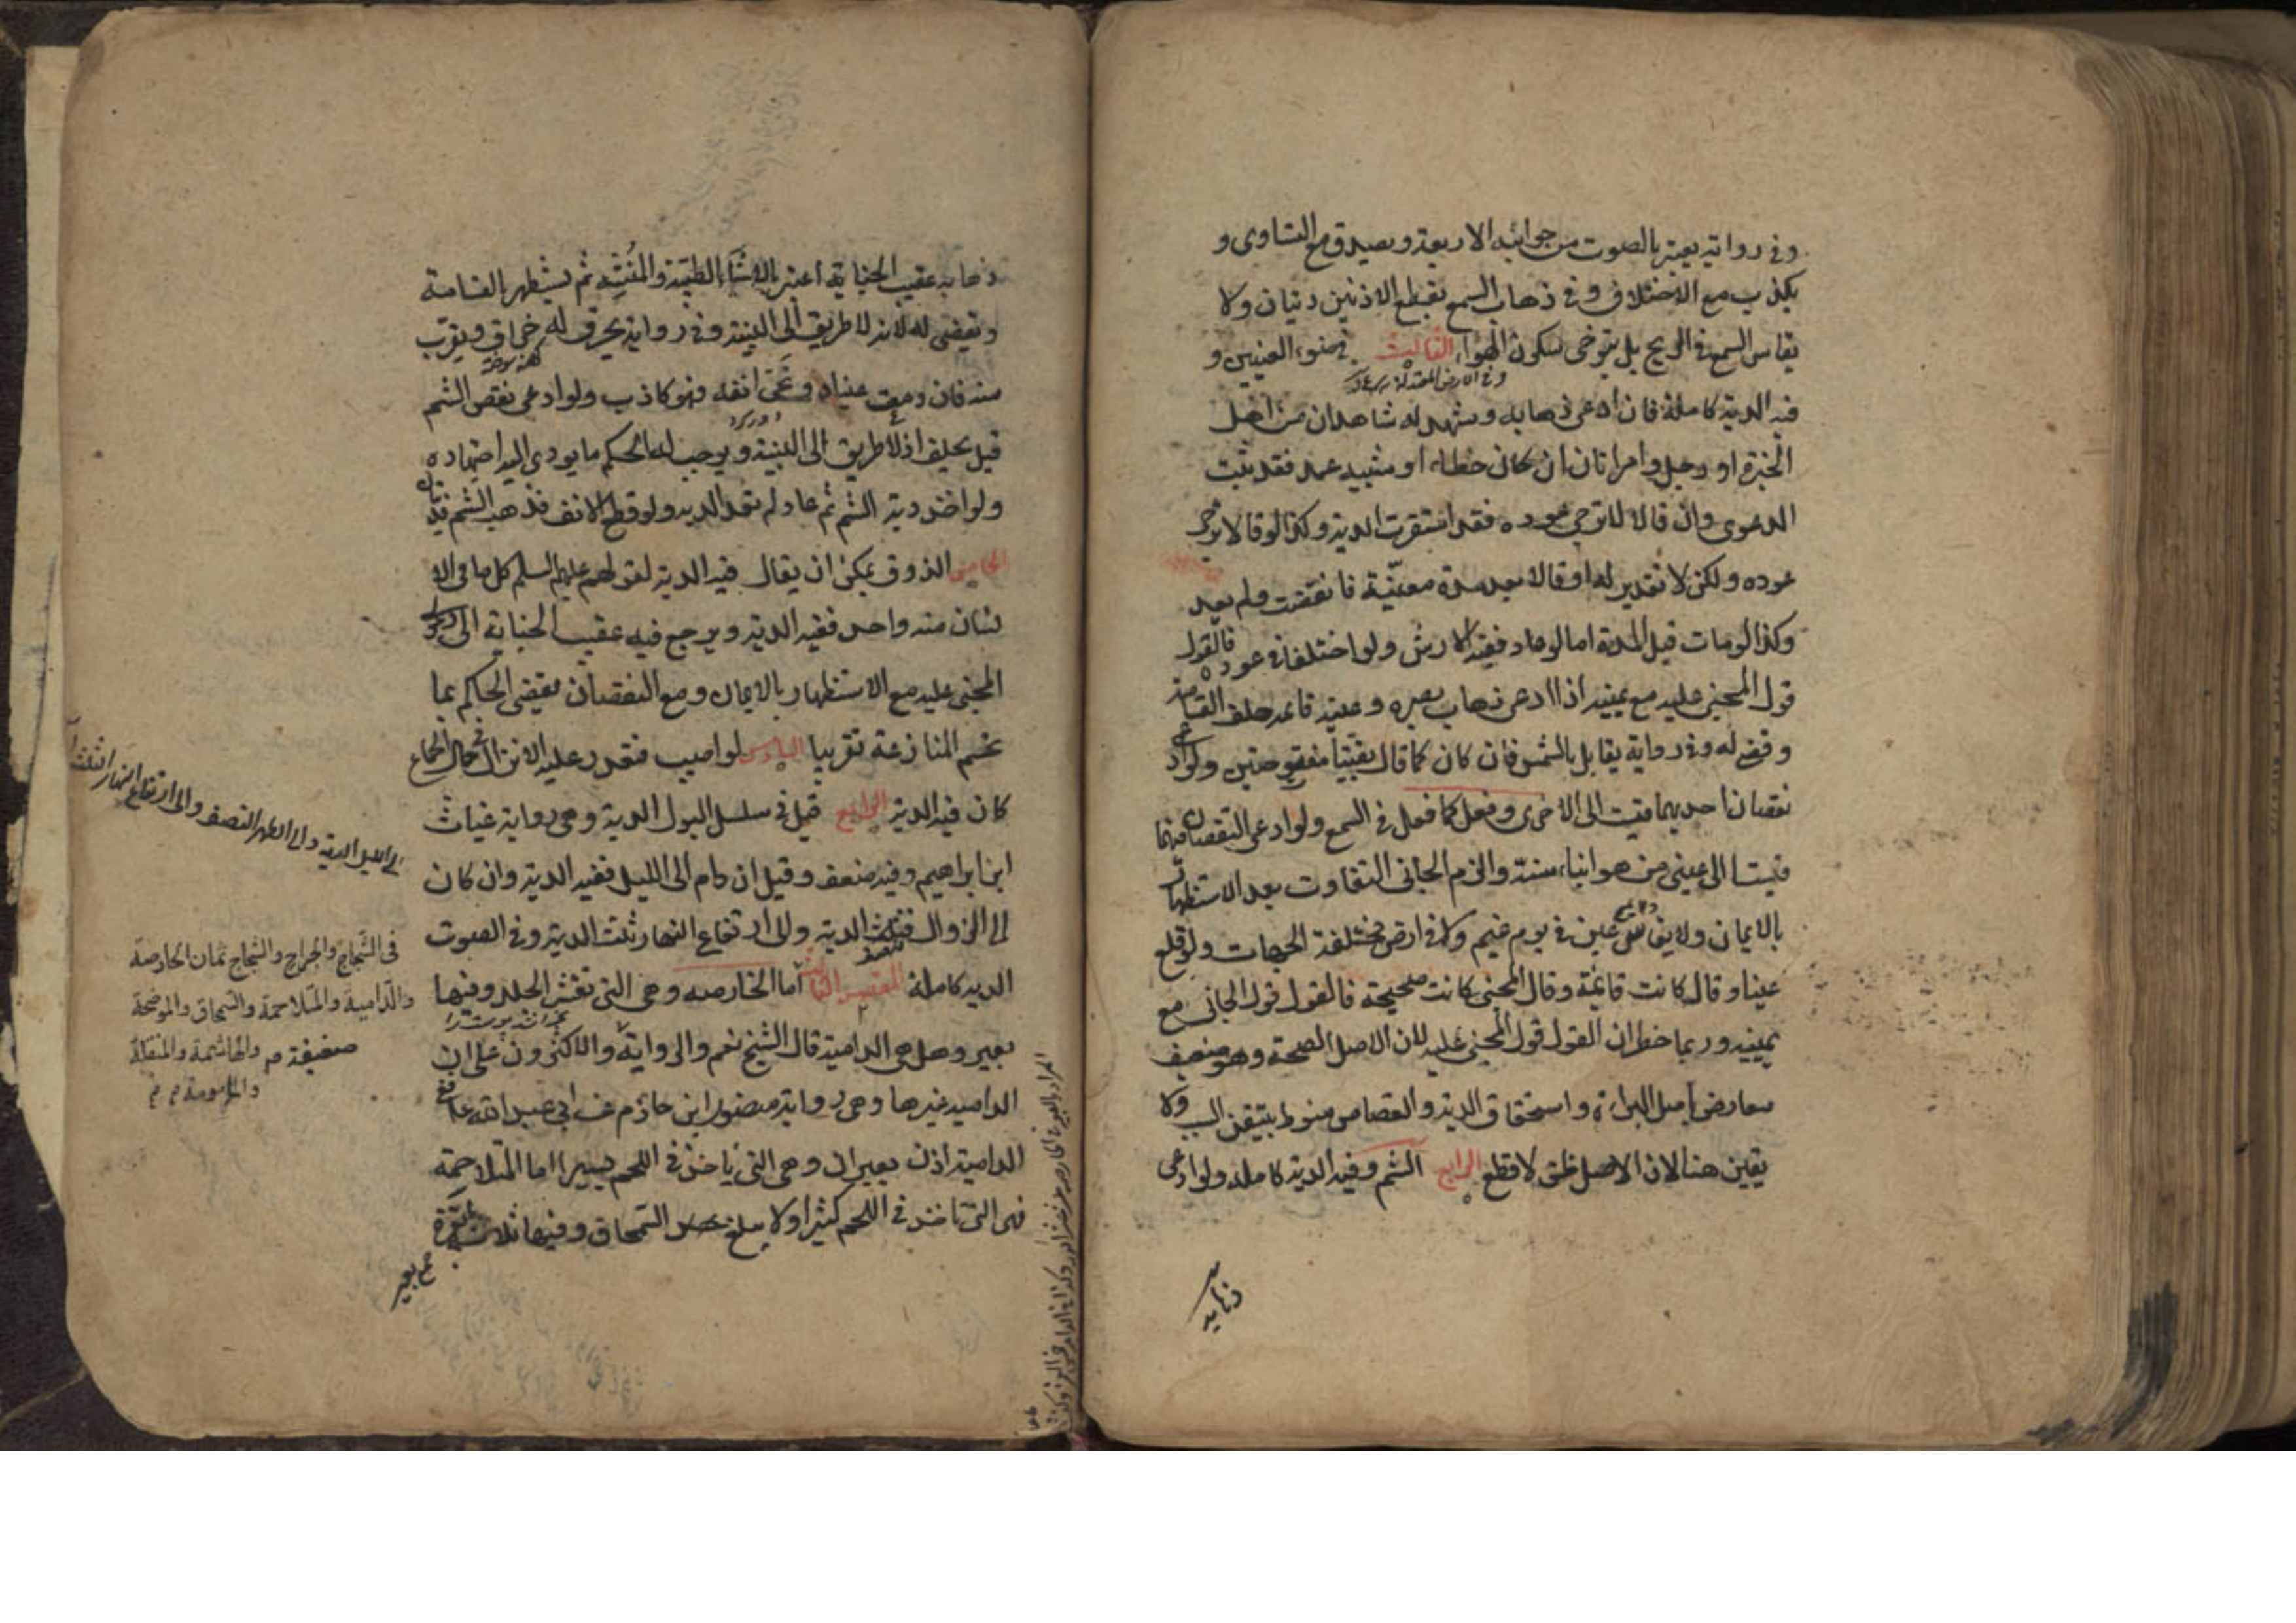 وفي رواية يعتبر بالصوت من جوانبه الاربعة ويصدق مع التساوى و
يكذب مع الاختلاف وفي ذهاب السمع بقطع الاذنين ديتان ولا
يقاس السمع في الريح بل يتوخى سكون الهواء الثالث في ضوء العينين و
فيه الدية كاملة فان ادعى ذهابه وشهد له شاهدان من اهل
الخبرة او رجل وامراتان ان كان خطاء او شبيه عمد فقد ثبت
الدعوى وان قالا لا يرجى عوده فقد استقرت الدية وكذا لو قالا يرجى
عوده ولكن لا تقدير له او قالا بعد مدة معينة فانقضت ولم يعد
وكذا لو مات قبل المدة اما لو عاد ففيه الارش ولو اختلفا في عوده فالقول
قول المجنى عليه مع يمينه اذا ادعى ذهاب بصره وعينه قائمة حلف القسامة
وقضى له وفي رواية يقابل بالشمس فان كان كما قال بقيتا مفتوحتين ولو ادعى
نقصان احديهما قيست الى الاخرى وفعل كما فعل في السمع ولو ادعى النقصان فيهما
قيستا الى عينى من هو ابناء سنه والزم الجانى التفاوت بعد الاستظهار
بالايمان ولا يقاس عين في يوم غيم ولا في ارض مختلفة الجهات ولو قلع
عينا وقال كانت قائمة وقال المجنى كانت صحيحة فالقول قول الجانى مع
يمينه وربما خطر ان القول قول المجنى عليه لان الاصل الصحة وهو ضعيف
معارض باصل البراءة واستحقاق الدية والقصاص منوط بتيقن السبب ولا
يقين هنا لان الاصل ظن لا قطع الرابع الشم وفيه الدية كاملة ولو ادعى
ذهابه
ذهابه عقيب الجناية اعتبر بالاشياء الطيبة والمنتنة ثم يستظهر القسامة
ويقضى له لانه لا طريق الى البينة وفي رواية يحرق له حراق ويقرب
منه فان دمعت عيناه ونحى انفه فهو كاذب ولو ادعى نقص الشم
قيل يحلف اذ لا طريق الى البينة ويوجب له الحاكم ما يودى اليه اجتهاده
ولو اخذ دية الشم ثم عاد لم تعد الدية ولو قطع الانف فذهب الشم فديتان
الخامس الذوق يمكن ان يقال فيه الدية لقولهم عليهم السلم كل ما في الا
نسان منه واحد ففيه الدية ويرجع فيه عقيب الجناية الى دعوى
المجنى عليه مع الاستظهار بالايمان ومع النقصان يقضى الحاكم بما
يحسم المنازعة تقريبا السادس لو اصيب فتعذر عليه الانزال في حال الجماع
كان فيه الدية السابع قيل في سلسل البول الدية وهى رواية غياث
ابن ابراهيم وفيه ضعف وقيل ان دام الى الليل ففيه الدية وان كان
الى الزوال فثلث الدية والى ارتفاع النهار ثلث الدية وفي الصوت
الدية كاملة المقصد الثالث اما الخارصه وهى التى تقشر الجلد وفيها
بعير وهل هى الدامية قال الشيخ نعم والرواية والاكثرون على ان
الدامية غيرها وهى رواية منصور ابن حازم عن ابى عبد الله ع ففي
الدامية اذن بعيران وهى التى ياخذ في اللحم يسيرا اما المتلاحمة
فهى التى تاخذ في اللحم كثيرا ولا يبلغ السمحاق وفيها ثلاث ابعرة
الى الليل الدية والى الظهر النصف والى ارتفاع النهار الثلث
في الشجاج والجراح والشجاج ثمان الحارصة
والدامية والمتلاحمة والسمحاق والموضحة
والهاشمة والمنقلة
والمامومة